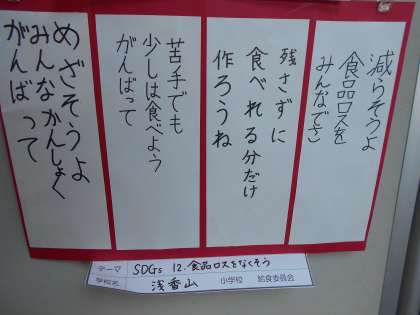 減らそうよ
食品ロスを
みんなでさ
残さずに
食べれる分だけ
作ろうね
苦手でも
少しは食べよう
がんばって
めざそうよ
みんなかんしょく
がんばって
テーマ SDGs 12.食品ロスをなくそう
学校名 浅香山 小学校 給食委員会